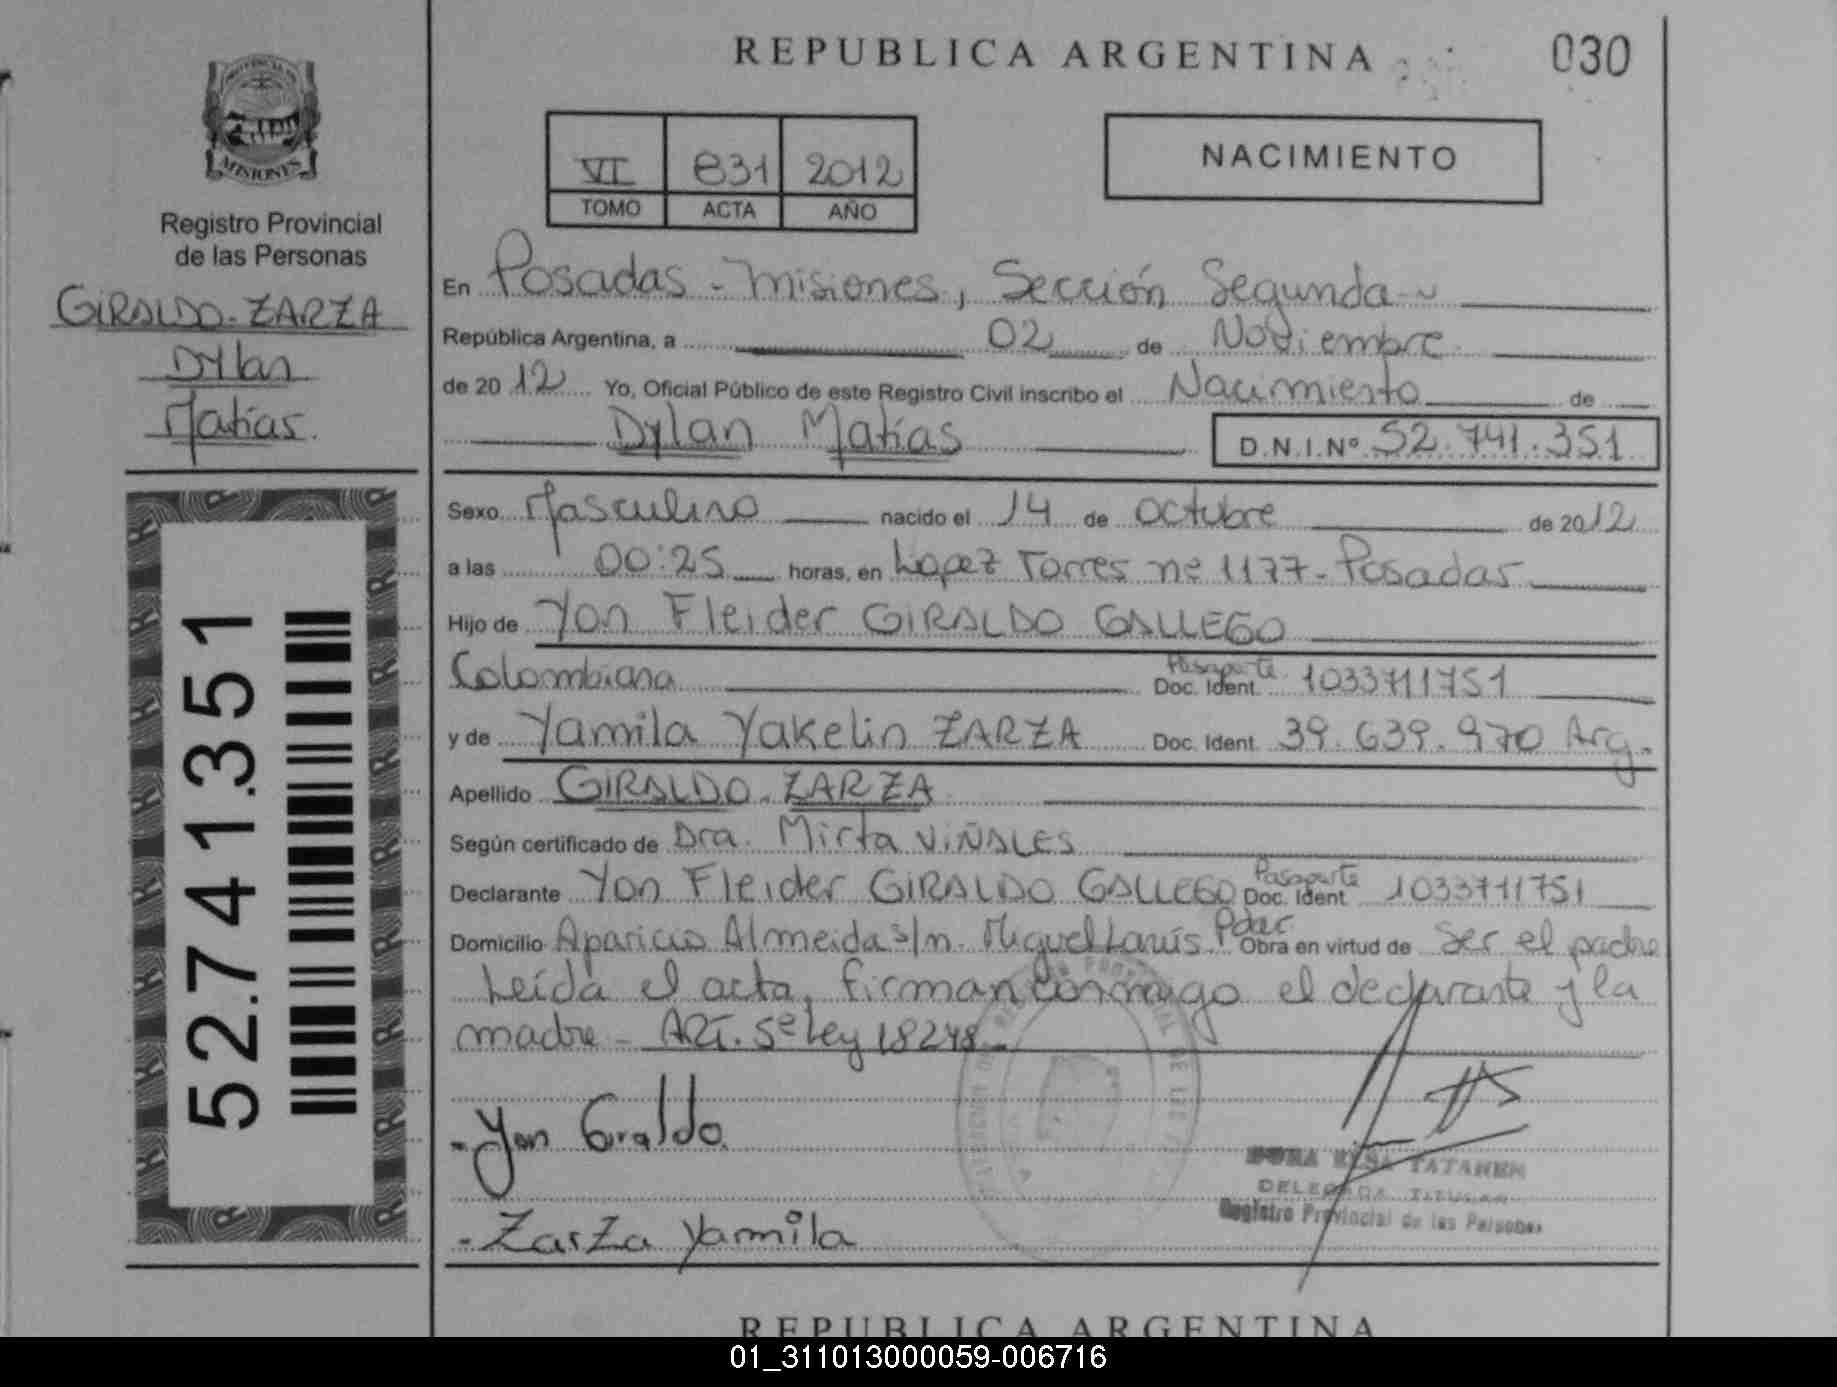 REPUBLICA ARGENTINA
030
PROVINCIA DE
MISIONES
Registro Provincial
de las Personas
GIRALDO-ZARZA
Dylan
Matías.
52.741.351
VI 831 2012
TOMO ACTA AÑO
NACIMIENTO
En Posadas - Misiones, Sección Segunda
República Argentina, a 02 de Noviembre
de 2012 Yo, Oficial Público de este Registro Civil inscribo el Nacimiento de
Dylan Matías D.N.I.Nº 52.741.351
Sexo Masculino nacido el 14 de octubre de 2012
a las 00:25 horas, en Lopez Torres nº 1177 - Posadas
Hijo de Yon Fleider GIRALDO GALLEGO
Colombiana Pasaporte Doc. Ident. 1033711751
y de Yamila Yakelin ZARZA Doc. Ident. 39.639.970 Arg.
Apellido GIRALDO-ZARZA
Según certificado de Dra. Mirta VIÑALES
Declarante Yon Fleider GIRALDO GALLEGO Pasaporte Doc. Ident 1033711751
Domicilio Aparicio Almeida s/n. Miguel Lanús Pdas. Obra en virtud de Ser el padre
Leída el acta, firman conmigo el declarante y la
madre - ART. 5º Ley 18248
- Yon Giraldo.
- Zarza Yamila
ELSA TATAREN
DELEGADA TITULAR
Registro Provincial de las Personas
REPUBLICA ARGENTINA
01_311013000059-006716